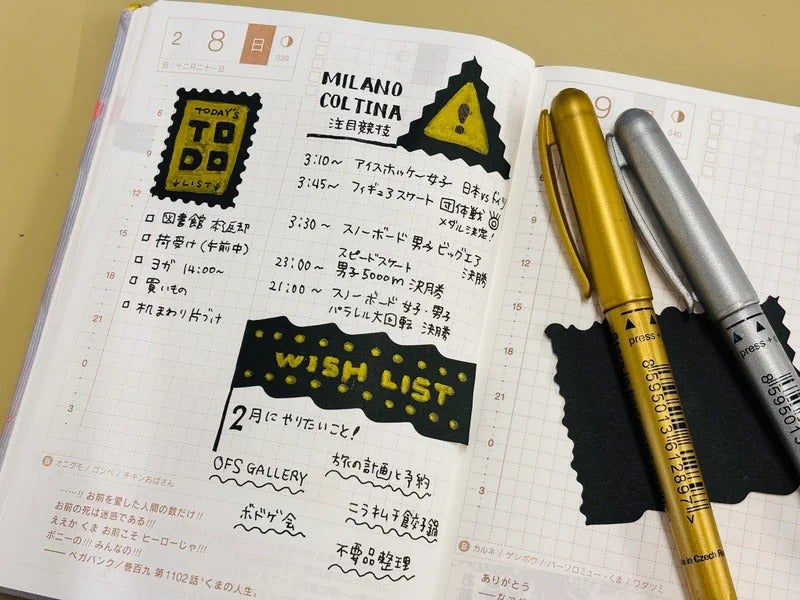 2 8 日
039
旧:十二月二十一日
TODAY'S
TO
DO
LIST
図書館 本返却
荷受け(午前中)
ヨガ 14:00~
買いもの
机まわり片づけ
9
12
15
18
21
0
3
MILANO
COLTINA
注目競技
3:10~ アイスホッケー女子 日本vsドイツ
3:45~ フィギュアスケート 団体戦
メダル決定!
3:30~ スノーボード 男子ビッグエア
決勝
スピードスケート
23:00~ 男子5000m 決勝
21:00~ スノーボード 女子・男子
パラレル大回転 決勝
WISH LIST
2月にやりたいこと!
OFS GALLERY
旅の計画と予約
ボドゲ会
ニラキムチ餃子鍋
不要品整理
B オニグモ/ゴンベ/チキンおばさん
……!! お前を愛した人間の数だけ!!
お前の死は迷惑である!!!
ええか くま お前こそ ヒーローじゃ!!!
ボニーの!!! みんなの!!!
── ベガパンク/巻百九 第1102話“くまの人生”
9
040
12
15
18
21
0
3
press
8595013612897>
Made in Czech Re
press
8595013
B カルネ/ゲンボウ/バーソロミュー・くま/ワダツミ
ありがとう